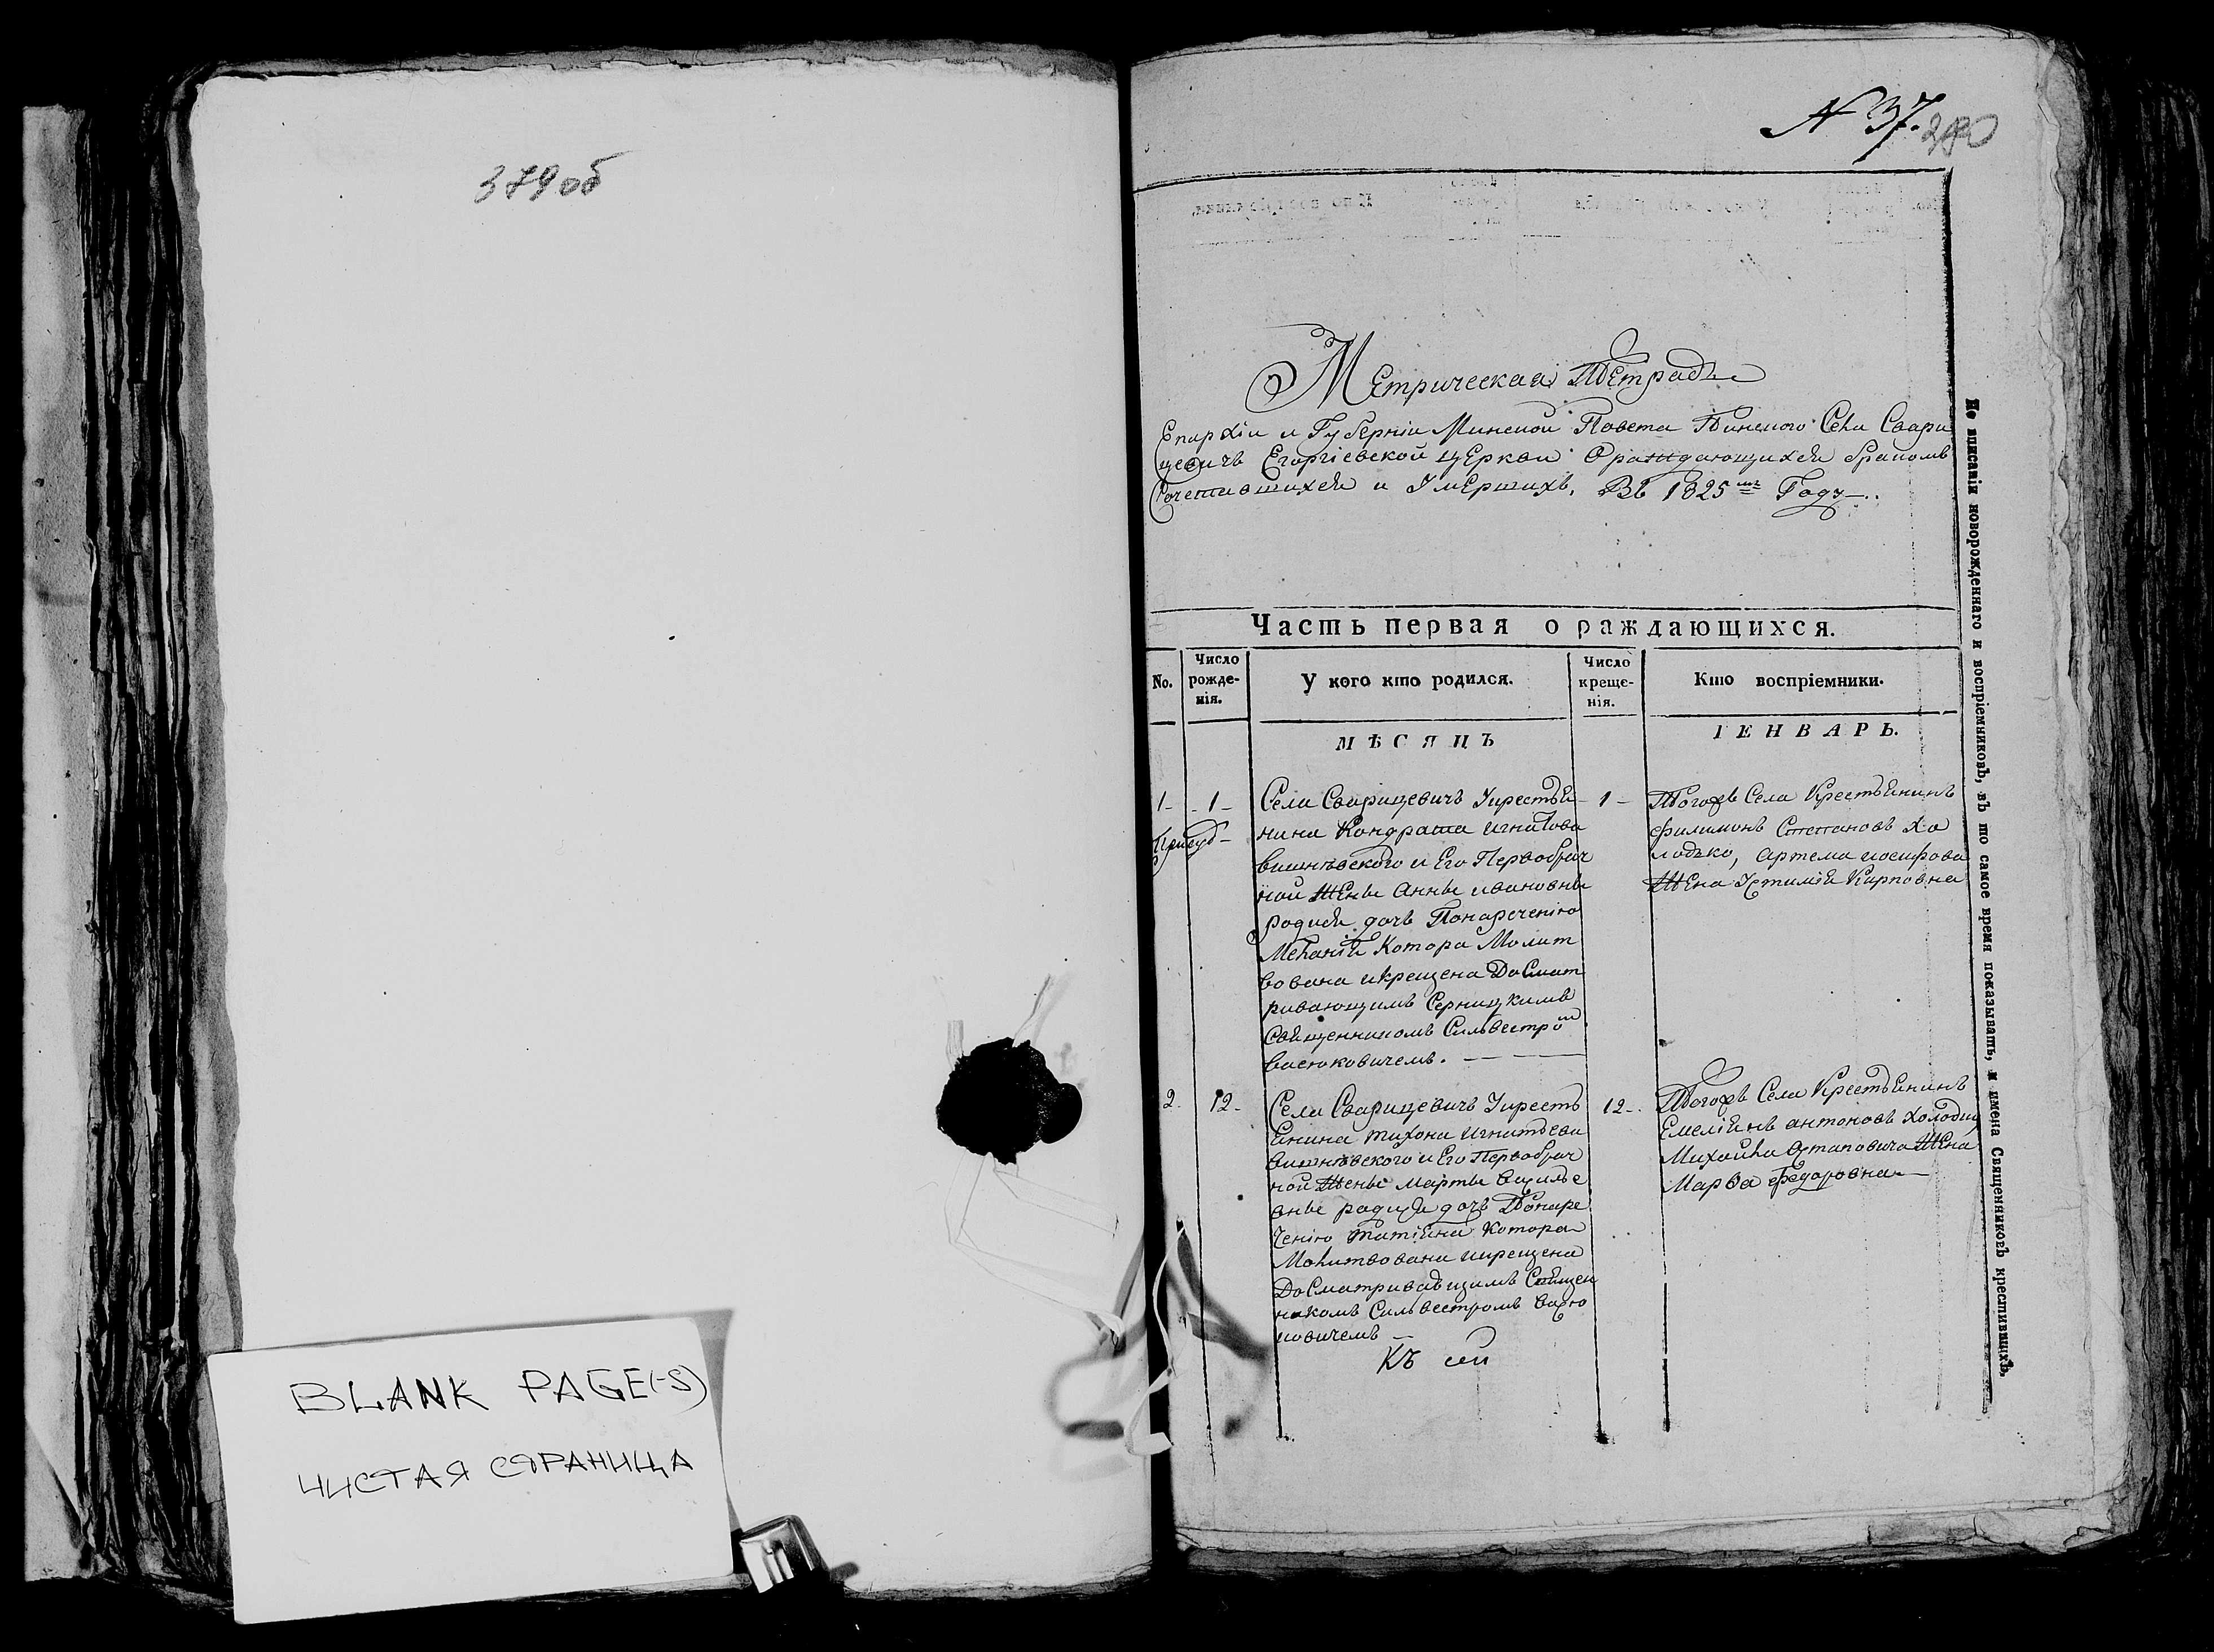 379 об
BLANK PAGE(-S)
ЧИСТАЯ СТРАНИЦА
N 37.
380
Метрическая Тетрадь
Епархіи и Губерніи Минской Повета Пинского Села Свари
цевичъ Егоргіевской церкви О раждающихся бракомъ
Сочетавшихся и Умершихъ, Въ 1825мъ Году
Часть первая о раждающихся.
No.
Число рожде-нія.
У кого кто родился.
Число креще-нія.
Кто воспріемники.
МѢСЯЦЪ
ІЕНВАРЬ.
1
1
Села Сварицевичъ Укрестья
нина Кондрата Игнатова
вишнѣвского и Его Первобрач
ной Жены Анны ивановны
родися дочь Понареченію
Меланія Котора Молит
вована икрещена Досмат
ривающимъ Серницкимъ
Священникомъ Сильвестром
васюковичемъ.
1
Тогожъ Села Крестьянинъ
филимонъ Степановъ Хо
лодько, артема иосифова
Жена Устимія Карповна
2.
12
Села Сварицевичъ Укресть
янина тихона Игнатьева
вишнѣвского и Его Первобрач
ной Жены марты василье
вны родися дочь Понаре
ченію татіяна Котора
Молитвована икрещена
Досматривающимъ Священ
никомъ Сильвестромъ васю
ковичемъ
12
Тогожъ Села Крестьянинъ
Емеліянъ антоновъ
Михайла Остаповича Жена
Марва федоровна
Не вписавіи новорожденнаго и воспріемниковъ, въ то самое время показывать, и имена Священниковъ крестившихъ.